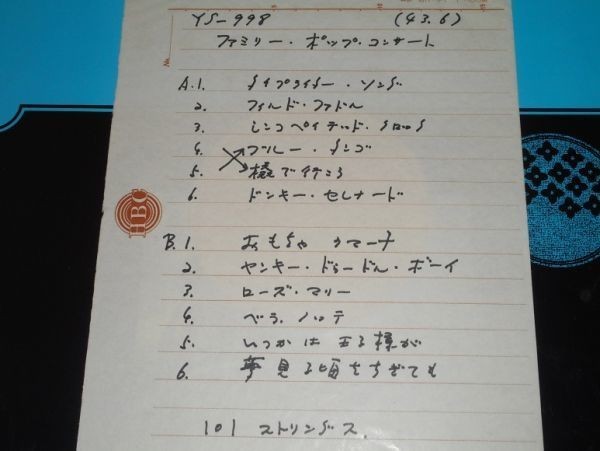 YS-998 (43.6)
ファミリー・ポップ・コンサート
A.1. タイプライター・ソング
2. フィルド・ファドル
3. シンコペイテッド・クロック
4. ブルー・タンゴ
5. 橇で行こう
6. ドンキー・セレナード
HBC
B.1. おもちゃのマーチ
2. ヤンキー・ドゥードル・ボーイ
3. ローズ・マリー
4. ベラ・ノッテ
5. いつかは王子様が
6. 夢見る頃をすぎても
101 ストリングス